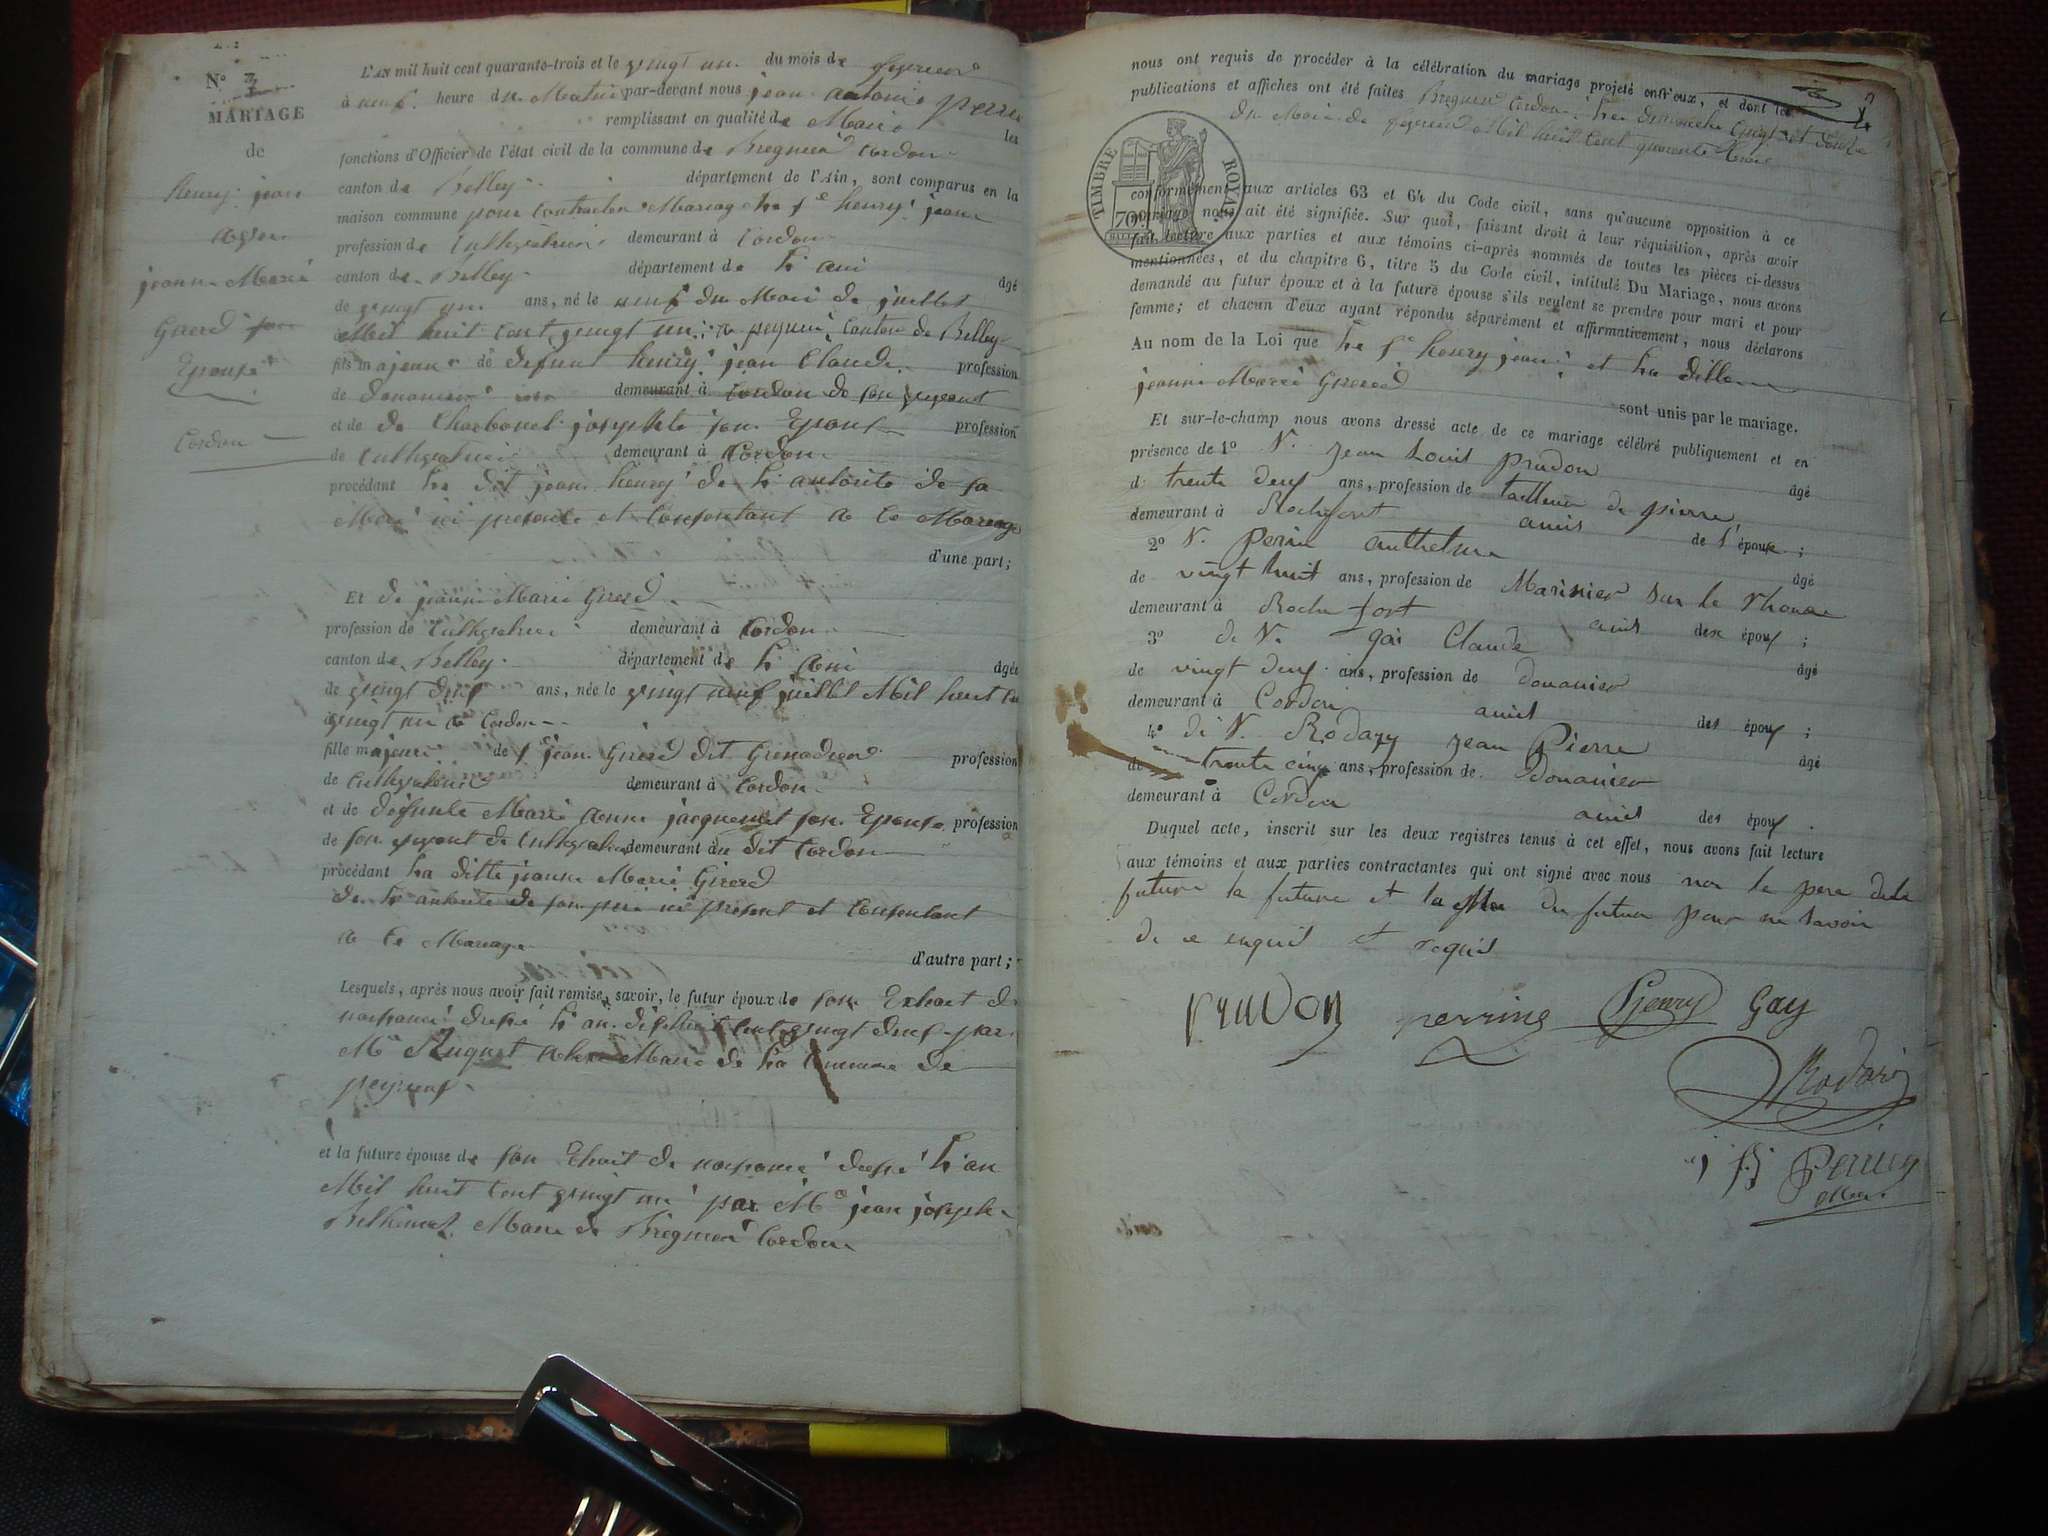 N° 3
MARIAGE
de
henry jean
avec
jeanne Marie
Gererd son
Epouse
Cordon
L'AN mil huit cent quarante-trois et le vingt un du mois de fevrier
à neuf heure du Matin par-devant nous jean antoine perrin
remplissant en qualité de Maire les
fonctions d'Officier de l'état civil de la commune de Bregnier Cordon
canton de Belley département de l'Ain, sont comparus en la
maison commune pour Contracter Mariage le sr henry jean
profession de Cultivateur demeurant à Cordon
canton de Belley département de l'ain âgé
de vingt un ans, né le neuf du Mois de juillet
Mil huit Cent vingt un a peyrieu Canton de Belley
fils majeur de defunt henry jean Claude profession
de douanier demeurant à Cordon de son vivant
et de de Charbonel josephte son Epouse profession
de Cultivatrice demeurant à Cordon
procédant le dit jean henry de l'autorité de sa
Mere ici presente et Consentant a ce Mariage
d'une part;
Et de jeanne Marie Gererd
profession de Cultivatrice demeurant à Cordon
canton de Belley département de l'ain âgée
de vingt deux ans, née le vingt neuf juillet Mil huit Cent
vingt un a Cordon
fille majeure de sr jean Gererd dit Grenadier profession
de Cultivateur demeurant à Cordon
et de defunte Marie anne jacquemet son Epouse profession
de son vivant de Cultivatrice demeurant au dit Cordon
procédant la ditte jeanne Marie Gererd
de l'autorité de son pere ici present et Consentant
a ce Mariage
d'autre part;
Lesquels, après nous avoir fait remise, savoir, le futur époux de son Extrait de
naissance dressé l'an dix huit Cent vingt deux par
Mr Huguet Maire de la Commune de
peyrieux
et la future épouse de son Extrait de naissance dressé l'an
Mil huit Cent vingt un par Mr jean joseph
Maire de Bregnier Cordon
nous ont requis de procéder à la célébration du mariage projeté entr'eux, et dont les
publications et affiches ont été faites Bregnier Cordon les dimanche Cinq et douze
du Mois de fevrier Mil huit Cent quarante trois
TIMBRE ROYAL
70c
conformément aux articles 63 et 64 du Code civil, sans qu'aucune opposition à ce
mariage nous ait été signifiée. Sur quoi, faisant droit à leur réquisition, après avoir
fait lecture aux parties et aux témoins ci-après nommés de toutes les pièces ci-dessus
mentionnées, et du chapitre 6, titre 5 du Code civil, intitulé Du Mariage, nous avons
demandé au futur époux et à la future épouse s'ils veulent se prendre pour mari et pour
femme; et chacun d'eux ayant répondu séparément et affirmativement, nous déclarons
Au nom de la Loi que le sr henry jean et la ditte
jeanne Marie Gererd
sont unis par le mariage.
Et sur-le-champ nous avons dressé acte de ce mariage célébré publiquement et en
présence de 1° N. Jean Louis prudon âgé
de trente deux ans, profession de tailleur de pierre
demeurant à Rochefort amis de l'épouse;
2° N. Perrin anthelme âgé
de vingt huit ans, profession de Marinier sur le rhone
demeurant à Rochefort amis des époux;
3° de N. gai Claude âgé
de vingt deux ans, profession de douanier
demeurant à Cordon amis des époux;
4° de N. Rodary jean Pierre âgé
de trente cinq ans, profession de Douanier
demeurant à Cordon amis des époux.
Duquel acte, inscrit sur les deux registres tenus à cet effet, nous avons fait lecture
aux témoins et aux parties contractantes qui ont signé avec nous non le pere de la
future la future et la Mere du futur pour ne savoir
de ce enquis et requis
PRUDON perrin henry Gay
Rodary
Perrin
Maire